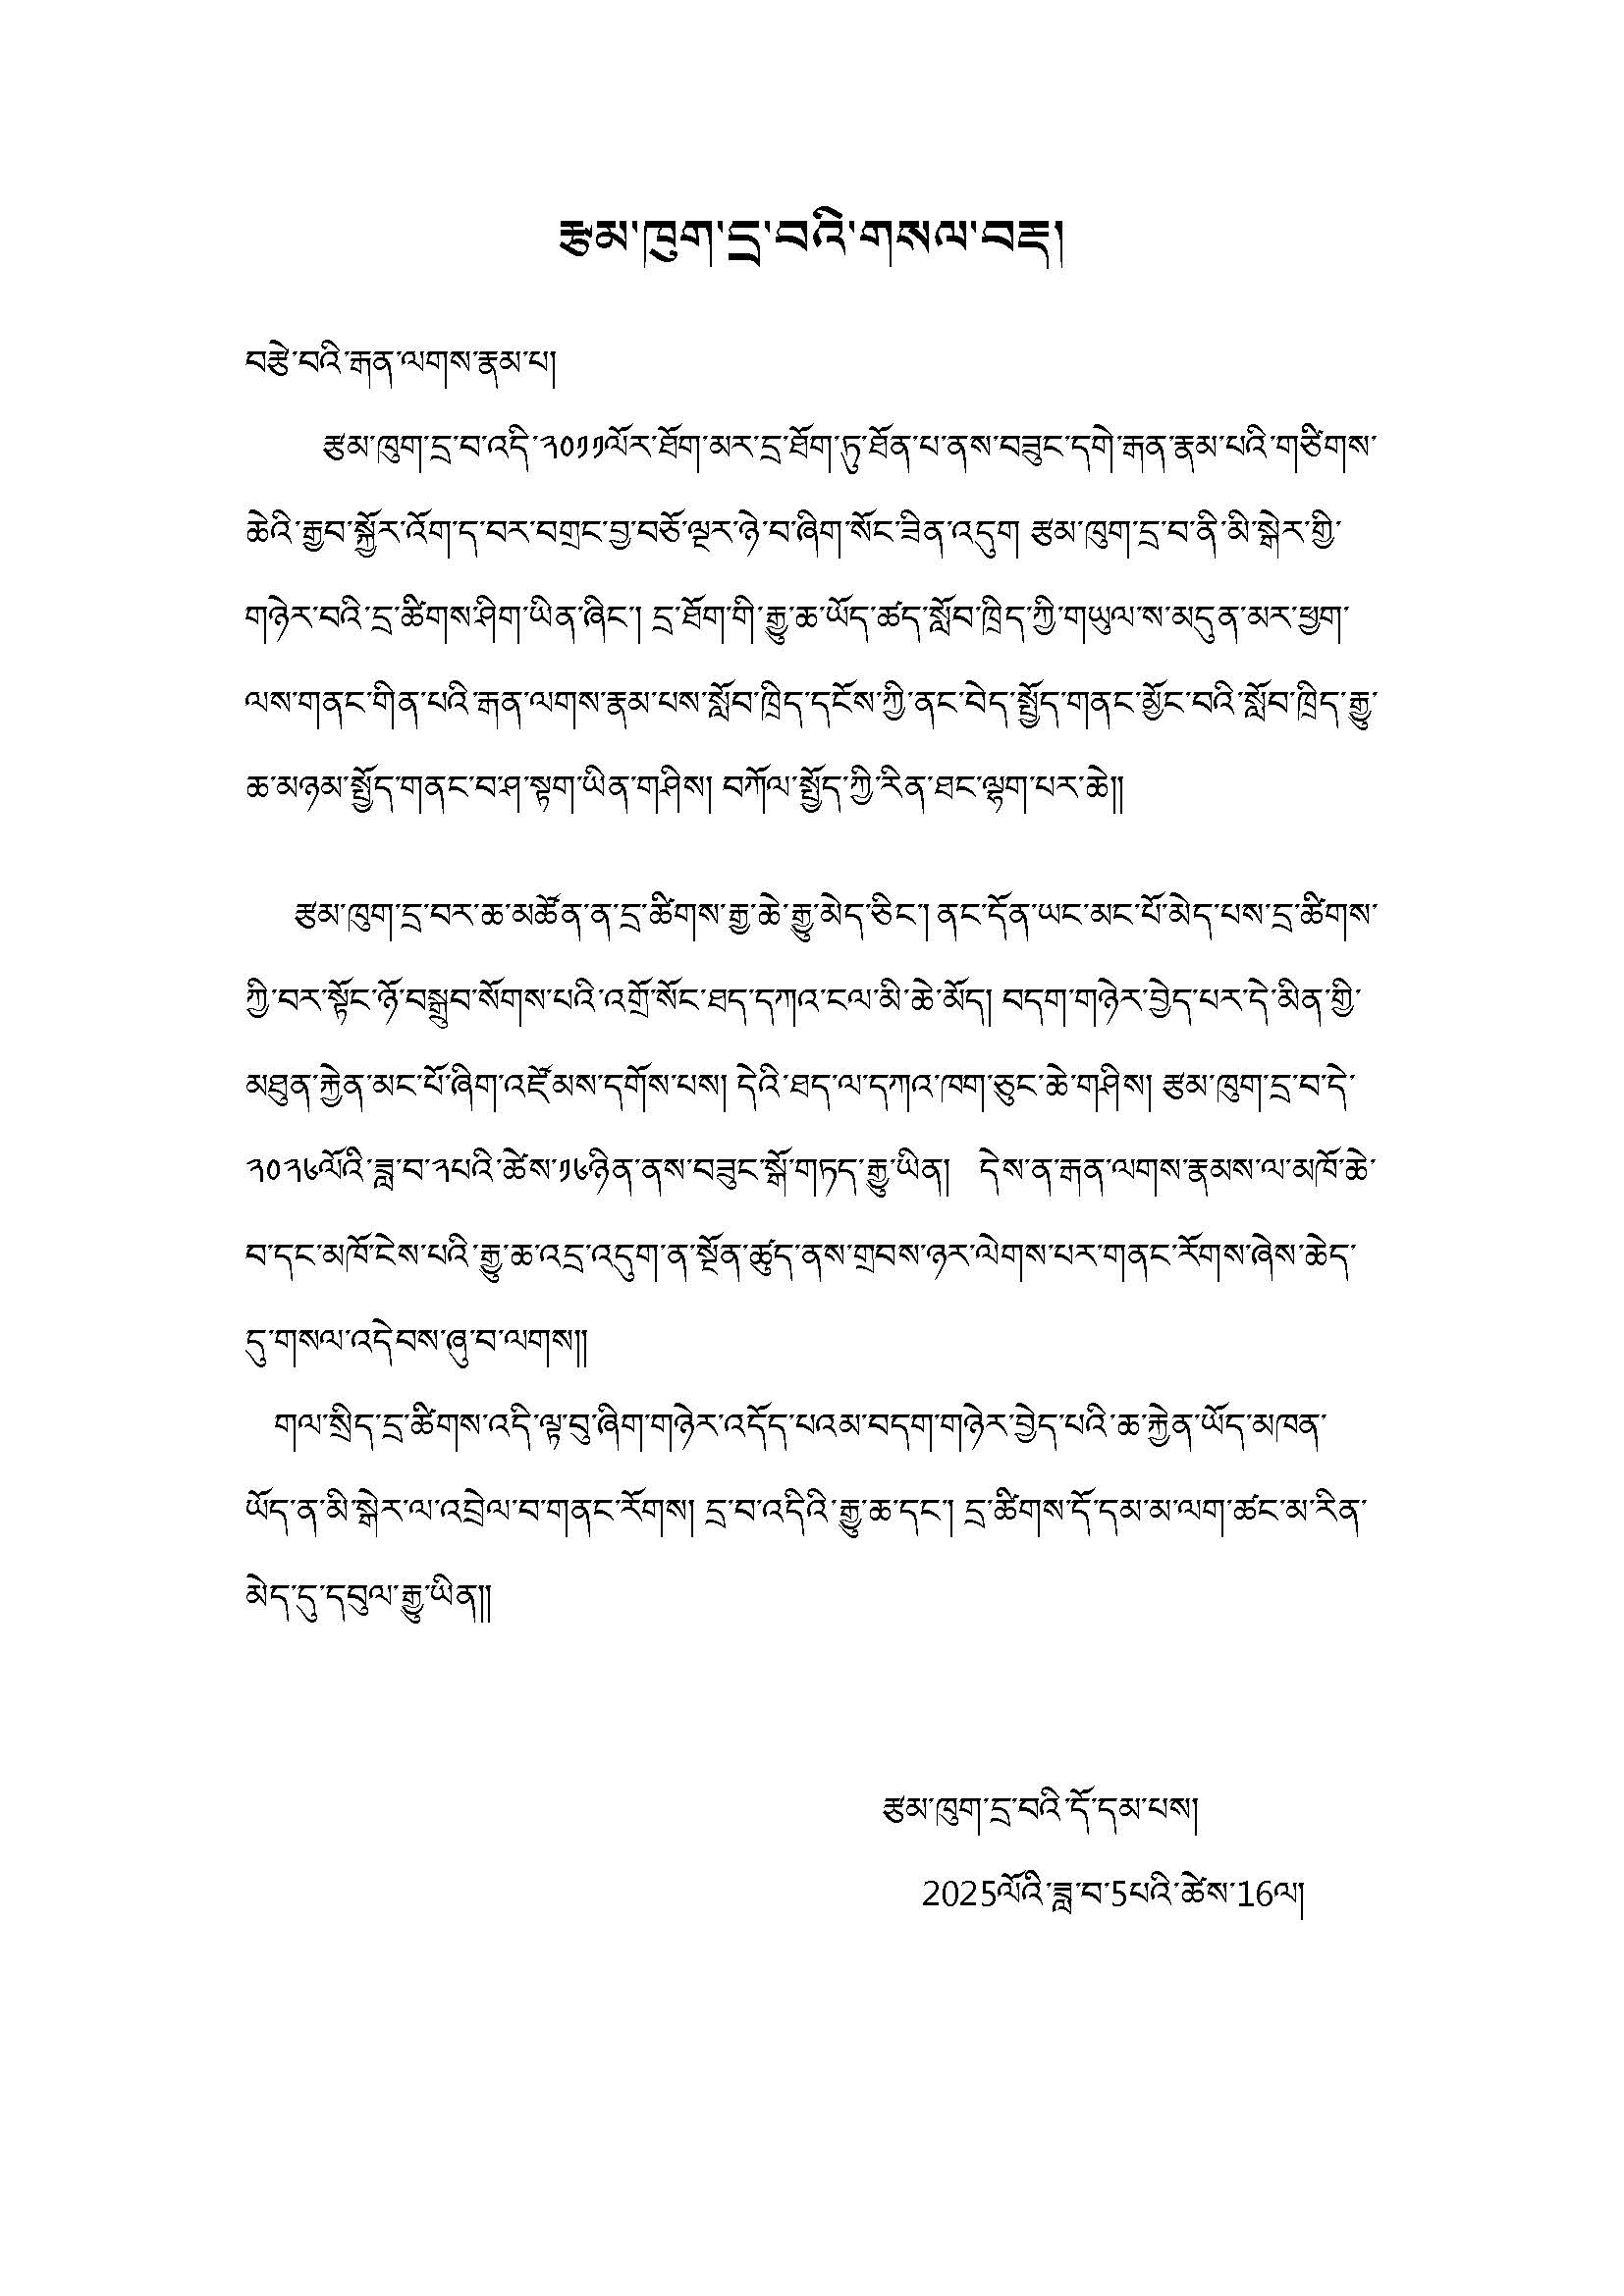 རྩམ་ཁུག་དྲ་བའི་གསལ་བརྡ།
བརྩེ་བའི་རྒན་ལགས་རྣམ་པ།
རྩམ་ཁུག་དྲ་བ་འདི་༢༠༡༡ལོར་ཐོག་མར་དྲ་ཐོག་ཏུ་ཐོན་པ་ནས་བཟུང་དགེ་རྒན་རྣམ་པའི་གཙིགས་
ཆེའི་རྒྱབ་སྐྱོར་འོག་ད་བར་བགྲང་བྱ་བཅོ་ལྔར་ཉེ་བ་ཞིག་སོང་ཟིན་འདུག རྩམ་ཁུག་དྲ་བ་ནི་མི་སྒེར་གྱི་
གཉེར་བའི་དྲ་ཚིགས་ཤིག་ཡིན་ཞིང་། དྲ་ཐོག་གི་རྒྱུ་ཆ་ཡོད་ཚད་སློབ་ཁྲིད་ཀྱི་གཡུལ་ས་མདུན་མར་ཕྱག་
ལས་གནང་གིན་པའི་རྒན་ལགས་རྣམ་པས་སློབ་ཁྲིད་དངོས་ཀྱི་ནང་བེད་སྤྱོད་གནང་མྱོང་བའི་སློབ་ཁྲིད་རྒྱུ་
ཆ་མཉམ་སྤྱོད་གནང་བ་ཤ་སྟག་ཡིན་གཤིས། བཀོལ་སྤྱོད་ཀྱི་རིན་ཐང་ལྷག་པར་ཆེ།།
རྩམ་ཁུག་དྲ་བར་ཆ་མཚོན་ན་དྲ་ཚིགས་རྒྱ་ཆེ་རྒྱུ་མེད་ཅིང་། ནང་དོན་ཡང་མང་པོ་མེད་པས་དྲ་ཚིགས་
ཀྱི་བར་སྟོང་ཉོ་བསྒྲུབ་སོགས་པའི་འགྲོ་སོང་ཐད་དཀའ་ངལ་མི་ཆེ་མོད། བདག་གཉེར་བྱེད་པར་དེ་མིན་གྱི་
མཐུན་རྐྱེན་མང་པོ་ཞིག་འཛོམས་དགོས་པས། དེའི་ཐད་ལ་དཀའ་ཁག་ཅུང་ཆེ་གཤིས། རྩམ་ཁུག་དྲ་བ་དེ་
༢༠༢༦ལོའི་ཟླ་བ་༢པའི་ཚེས་༡༦ཉིན་ནས་བཟུང་སྒོ་གཏད་རྒྱུ་ཡིན། དེས་ན་རྒན་ལགས་རྣམས་ལ་མཁོ་ཆེ་
བ་དང་མཁོ་ངེས་པའི་རྒྱུ་ཆ་འདྲ་འདུག་ན་སྔོན་ཚུད་ནས་གྲབས་ཉར་ལེགས་པར་གནང་རོགས་ཞེས་ཆེད་
དུ་གསལ་འདེབས་ཞུ་བ་ལགས།།
གལ་སྲིད་དྲ་ཚིགས་འདི་ལྟ་བུ་ཞིག་གཉེར་འདོད་པའམ་བདག་གཉེར་བྱེད་པའི་ཆ་རྐྱེན་ཡོད་མཁན་
ཡོད་ན་མི་སྒེར་ལ་འབྲེལ་བ་གནང་རོགས། དྲ་བ་འདིའི་རྒྱུ་ཆ་དང་། དྲ་ཚིགས་དོ་དམ་མ་ལག་ཚང་མ་རིན་
མེད་དུ་དབུལ་རྒྱུ་ཡིན།།
རྩམ་ཁུག་དྲ་བའི་དོ་དམ་པས།
2025ལོའི་ཟླ་བ་5པའི་ཚེས་16ལ།